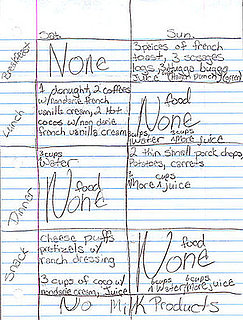 Sat. Sun.
Breakfast
None
3 pieces of french
toast, 3 sosages
logs, 3 huge bunga
Juice (Hawaiian Punch) (Coffee)
Lunch
1 donught, 2 coffees
w/nondarie french
vanilla cream, 2 Hot
cocoes w/non darie
french vanilla cream
food
None
3 cups
Water more juice
Dinner
3 cups
water
food
None
2 thin small pork chops,
Potatoes, carrots
2 cups
More juice
Snack
cheese puffs
pretzels w/
ranch dressing
3 cups of coco w/
nondarie cream, Juice
food
None
Water/more juice
No Milk Products